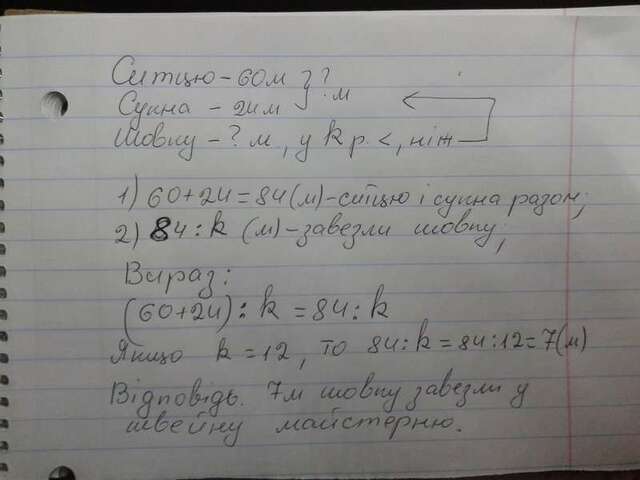 Ситцю - 60м } ?
Сукна - 24м } м
Шовку - ? м, у k р. <, ніж
1) 60+24=84(м)-ситцю і сукна разом;
2) 84:k (м)-завезли шовку;
Вираз:
(60+24):k=84:k
Якщо k=12, то 84:k=84:12=7(м)
Відповідь. 7м шовку завезли у
швейну майстерню.